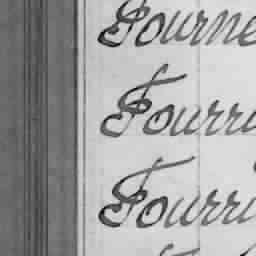 Fourne
Fourri
Fourri